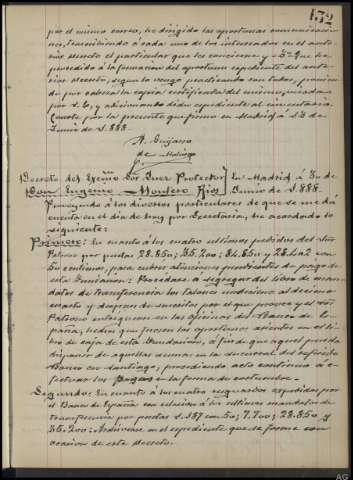 132
por el mismo correo, he dirigido las oportunas comunicaciones,
transcribiendo á cada uno de los interesados en el anterior
decreto el particular que les concierne; y 3º Que he
procedido á la formacion del oportuno expediente del anterior
decreto, segun lo vengo practicando con todos,
de por cabeza la copia certificada del mismo,
por S. E., y adicionando dicho expediente al inventario.
Consta por la presente que firmo en Madrid á 13 de
Junio de 1.888.
R. Guijarro
de
Decreto del Excmo Sor Juez Protector
Don Eugenio Montero Rios
En Madrid á 3 de
Junio de 1.888.
Proveyendo á los diversos particulares de que se me dá
cuenta en el dia de hoy por Secretaría, he acordado lo
siguiente:
Primero: En cuanto á los cuatro ultimos pedidos del Sor
Patrono por pesetas 28.850; 35.200; 34.850 y 28.202 con
50 centimos, para cubrir atenciones pendientes de pago de
esta Fundacion: Procédase á segregar del libro de mandatos
de transferencia los talones
exacto y despues de suscritos por el que provee y el Sor
Patrono entréguense en las oficinas del Banco de España,
hechos que fuesen los oportunos asientos en el libro
de caja de esta Fundacion, á fin de que aquel pueda
disponer de aquellas sumas en la sucursal del referido
Banco en Santiago, procediendo acto continuo á
efectuar los pagos en la forma de costumbre.
Segundo: En cuanto á los cuatro resguardos expedidos por
el Banco de España con relacion á los ultimos mandatos de
transferencia por pesetas 1.187 con 50; 7.700; 28.850 y
35.200: Archívense en el expediente que se forme con
ocasion de este decreto.
AG